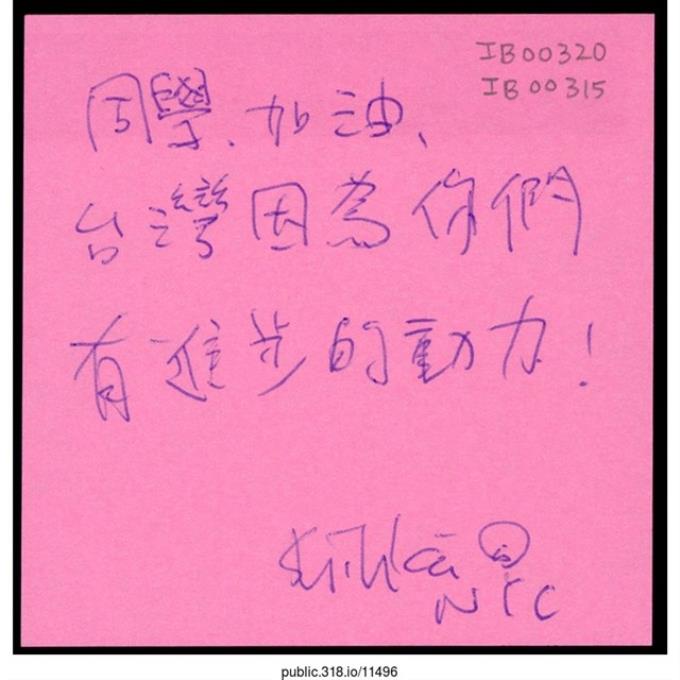 IB00320
IB00315
同學、加油、
台灣因為你們
有進步的動力！
NYC
public.318.io/11496